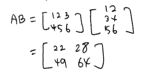 AB = [1 2 3 [1 2
4 5 6] 3 4
5 6]
= [22 28
49 64]